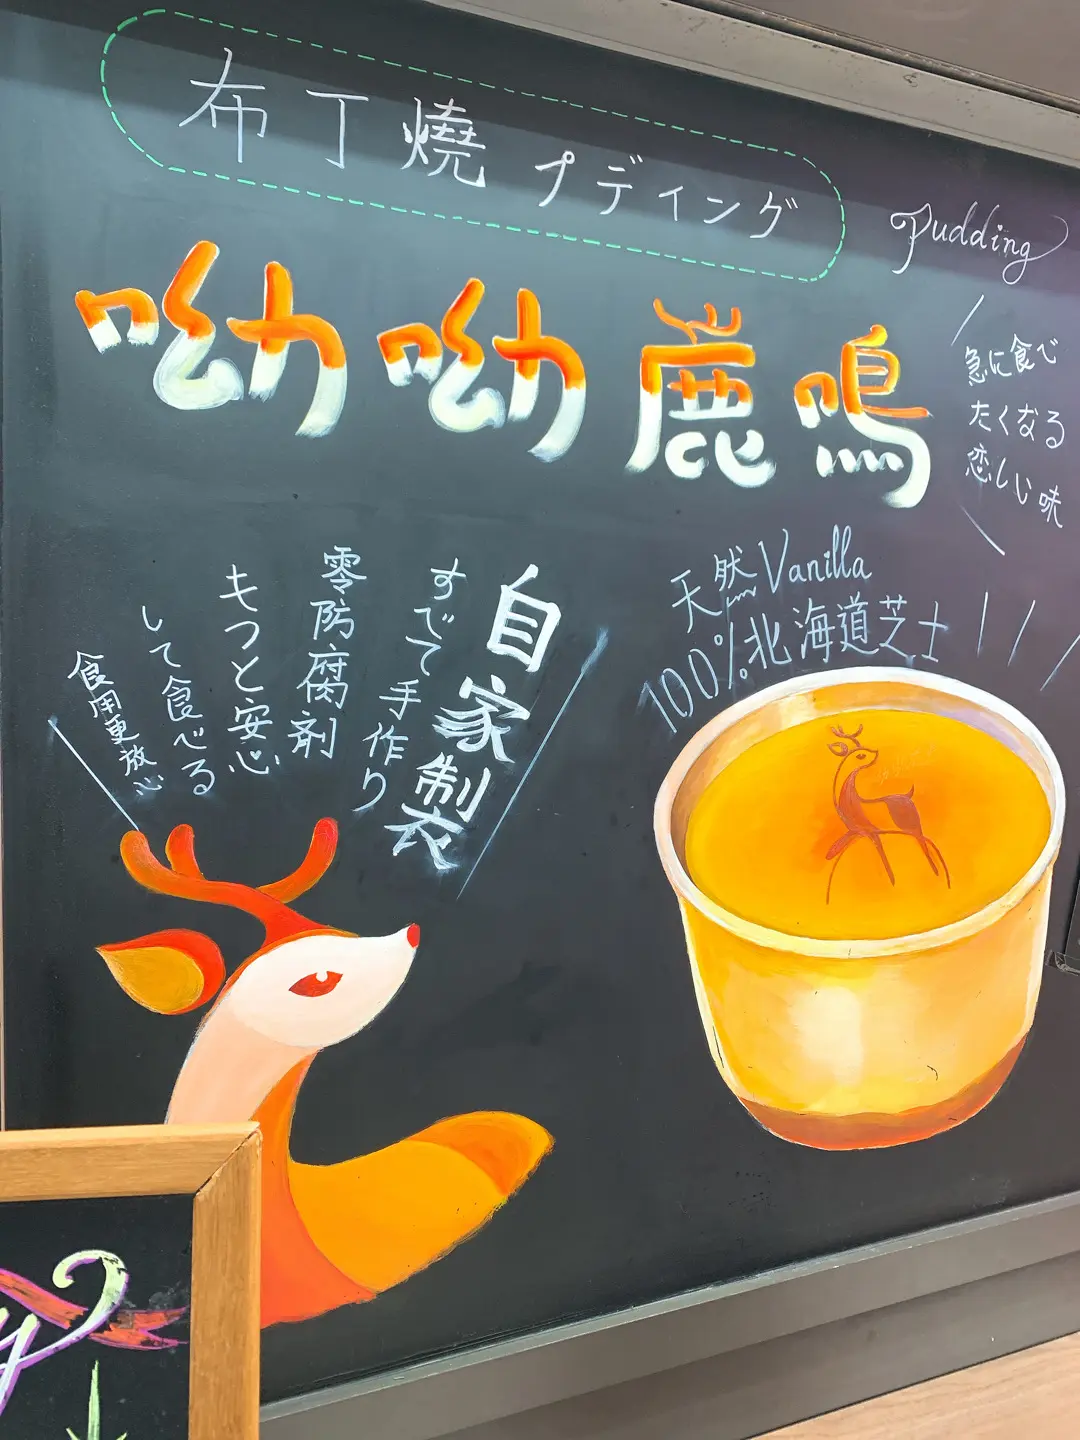 布丁燒 プディング
Pudding
呦呦鹿鳴
急に食べ
たくなる
恋しい味
天然Vanilla
100%北海道芝士
自家製
すでて手作り
零防腐剤
もつと安心
して食べる
食用更放心